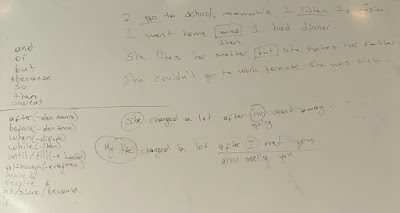 I go to school, meanwhile I listen to music
I went home and I had dinner
then
She likes her mother but she hates her father.
She couldn't go to work because she was sick.
and
or
but
because
so
then
whereas
after (-den sonra)
before (-den önce)
when (-diğinde)
while (-iken)
until/till (-e kadar)
although (-e rağmen)
inspite of
despite
as/since/because
if
She changed a lot after he went away.
going
My life changed a lot after I met you
after meeting you